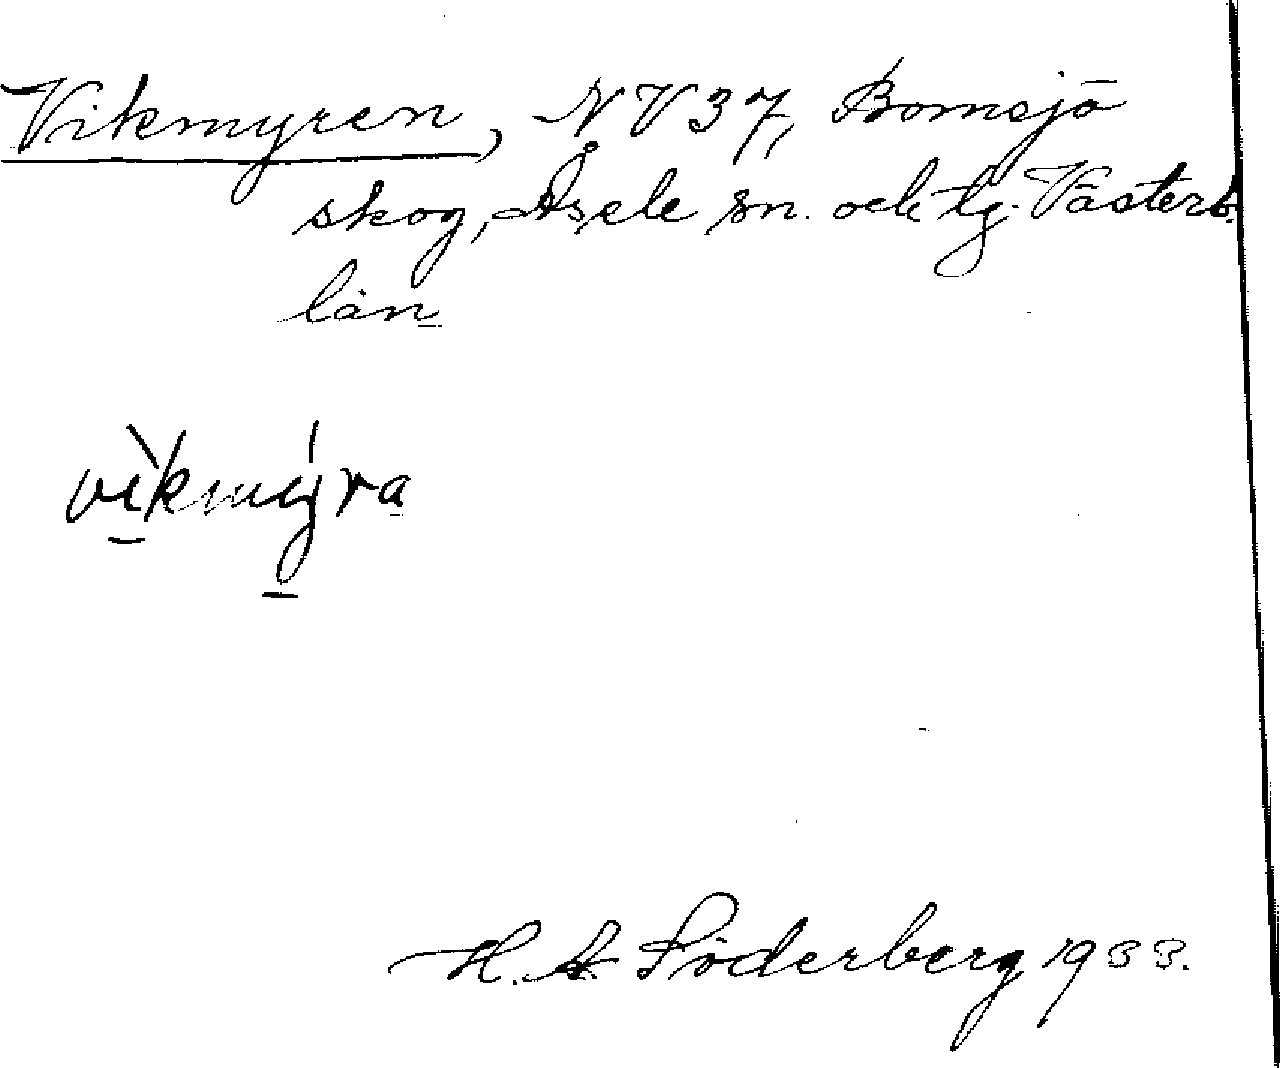 Vikmyren, NV 37, Bomsjö
skog, Åsele sn. och tg. Västerb.
län
vìkmýra
H. A. Söderberg 1933.